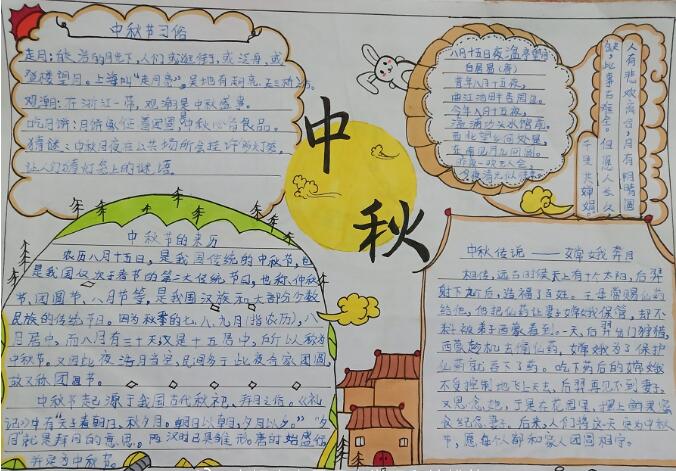 中秋节习俗
走月:皎洁的月光下,人们或逛街,或泛舟,或
登楼望月。上海叫"走月亮",
观潮:在浙江一带,观潮是中秋盛事。
吃月饼:月饼象征着团圆,中秋必备食品。
猜谜:中秋月夜在公共场所会挂许多灯笼,
让人们猜灯笼上的谜语。
八月十五日夜湓亭望月
白居易(唐)
昔年八月十五夜,
曲江池畔杏园边。
今年八月十五夜,
湓浦沙头水馆前。
西北望乡何处是,
东南见月几回圆。
昨夜一吹无人会,
今夜清光似往年。
人有悲欢离合,月有阴晴圆
缺,此事古难全。但愿人长久
千里共婵娟。
中
秋
中秋节的来历
农历八月十五日,是我国传统的中秋节,也
是我国仅次于春节的第二大传统节日,也称、仲秋
节、团圆节、八月节等,是我国汉族和大部分少数
民族的传统节日。因为秋季的七、八、九月(指农历),八
月居中,而八月有三十天,又是十五居中,所以称为
中秋节。又因此夜,浩月当空,民间多于此夜合家团圆,
故又称团圆节。
中秋节起源于我国古代秋祀、拜月之俗。《礼
记》中有"天子春朝日,秋夕月。朝日以朝,夕月以夕。""夕
月"就是拜月的意思。两汉时已具雏形,唐时始盛
中秋传说——嫦娥奔月
相传,远古时候天上有十个太阳,后羿
射下九日后,造福了百姓。王母赏赐仙药
给他,他把仙药让妻子嫦娥保管,却不
料被蒙看到。一天,后羿出门狩猎,
蒙趁机去偷仙药,嫦娥为了保护
仙药就吞下了药。吃下药后的嫦娥
不受控制地飞上天去,后羿再见不到妻子,
又思念她,于是在花园里,摆上
食纪念妻子。后来,人们将这一天定为中秋
节,愿每个人都和家人团圆相守。